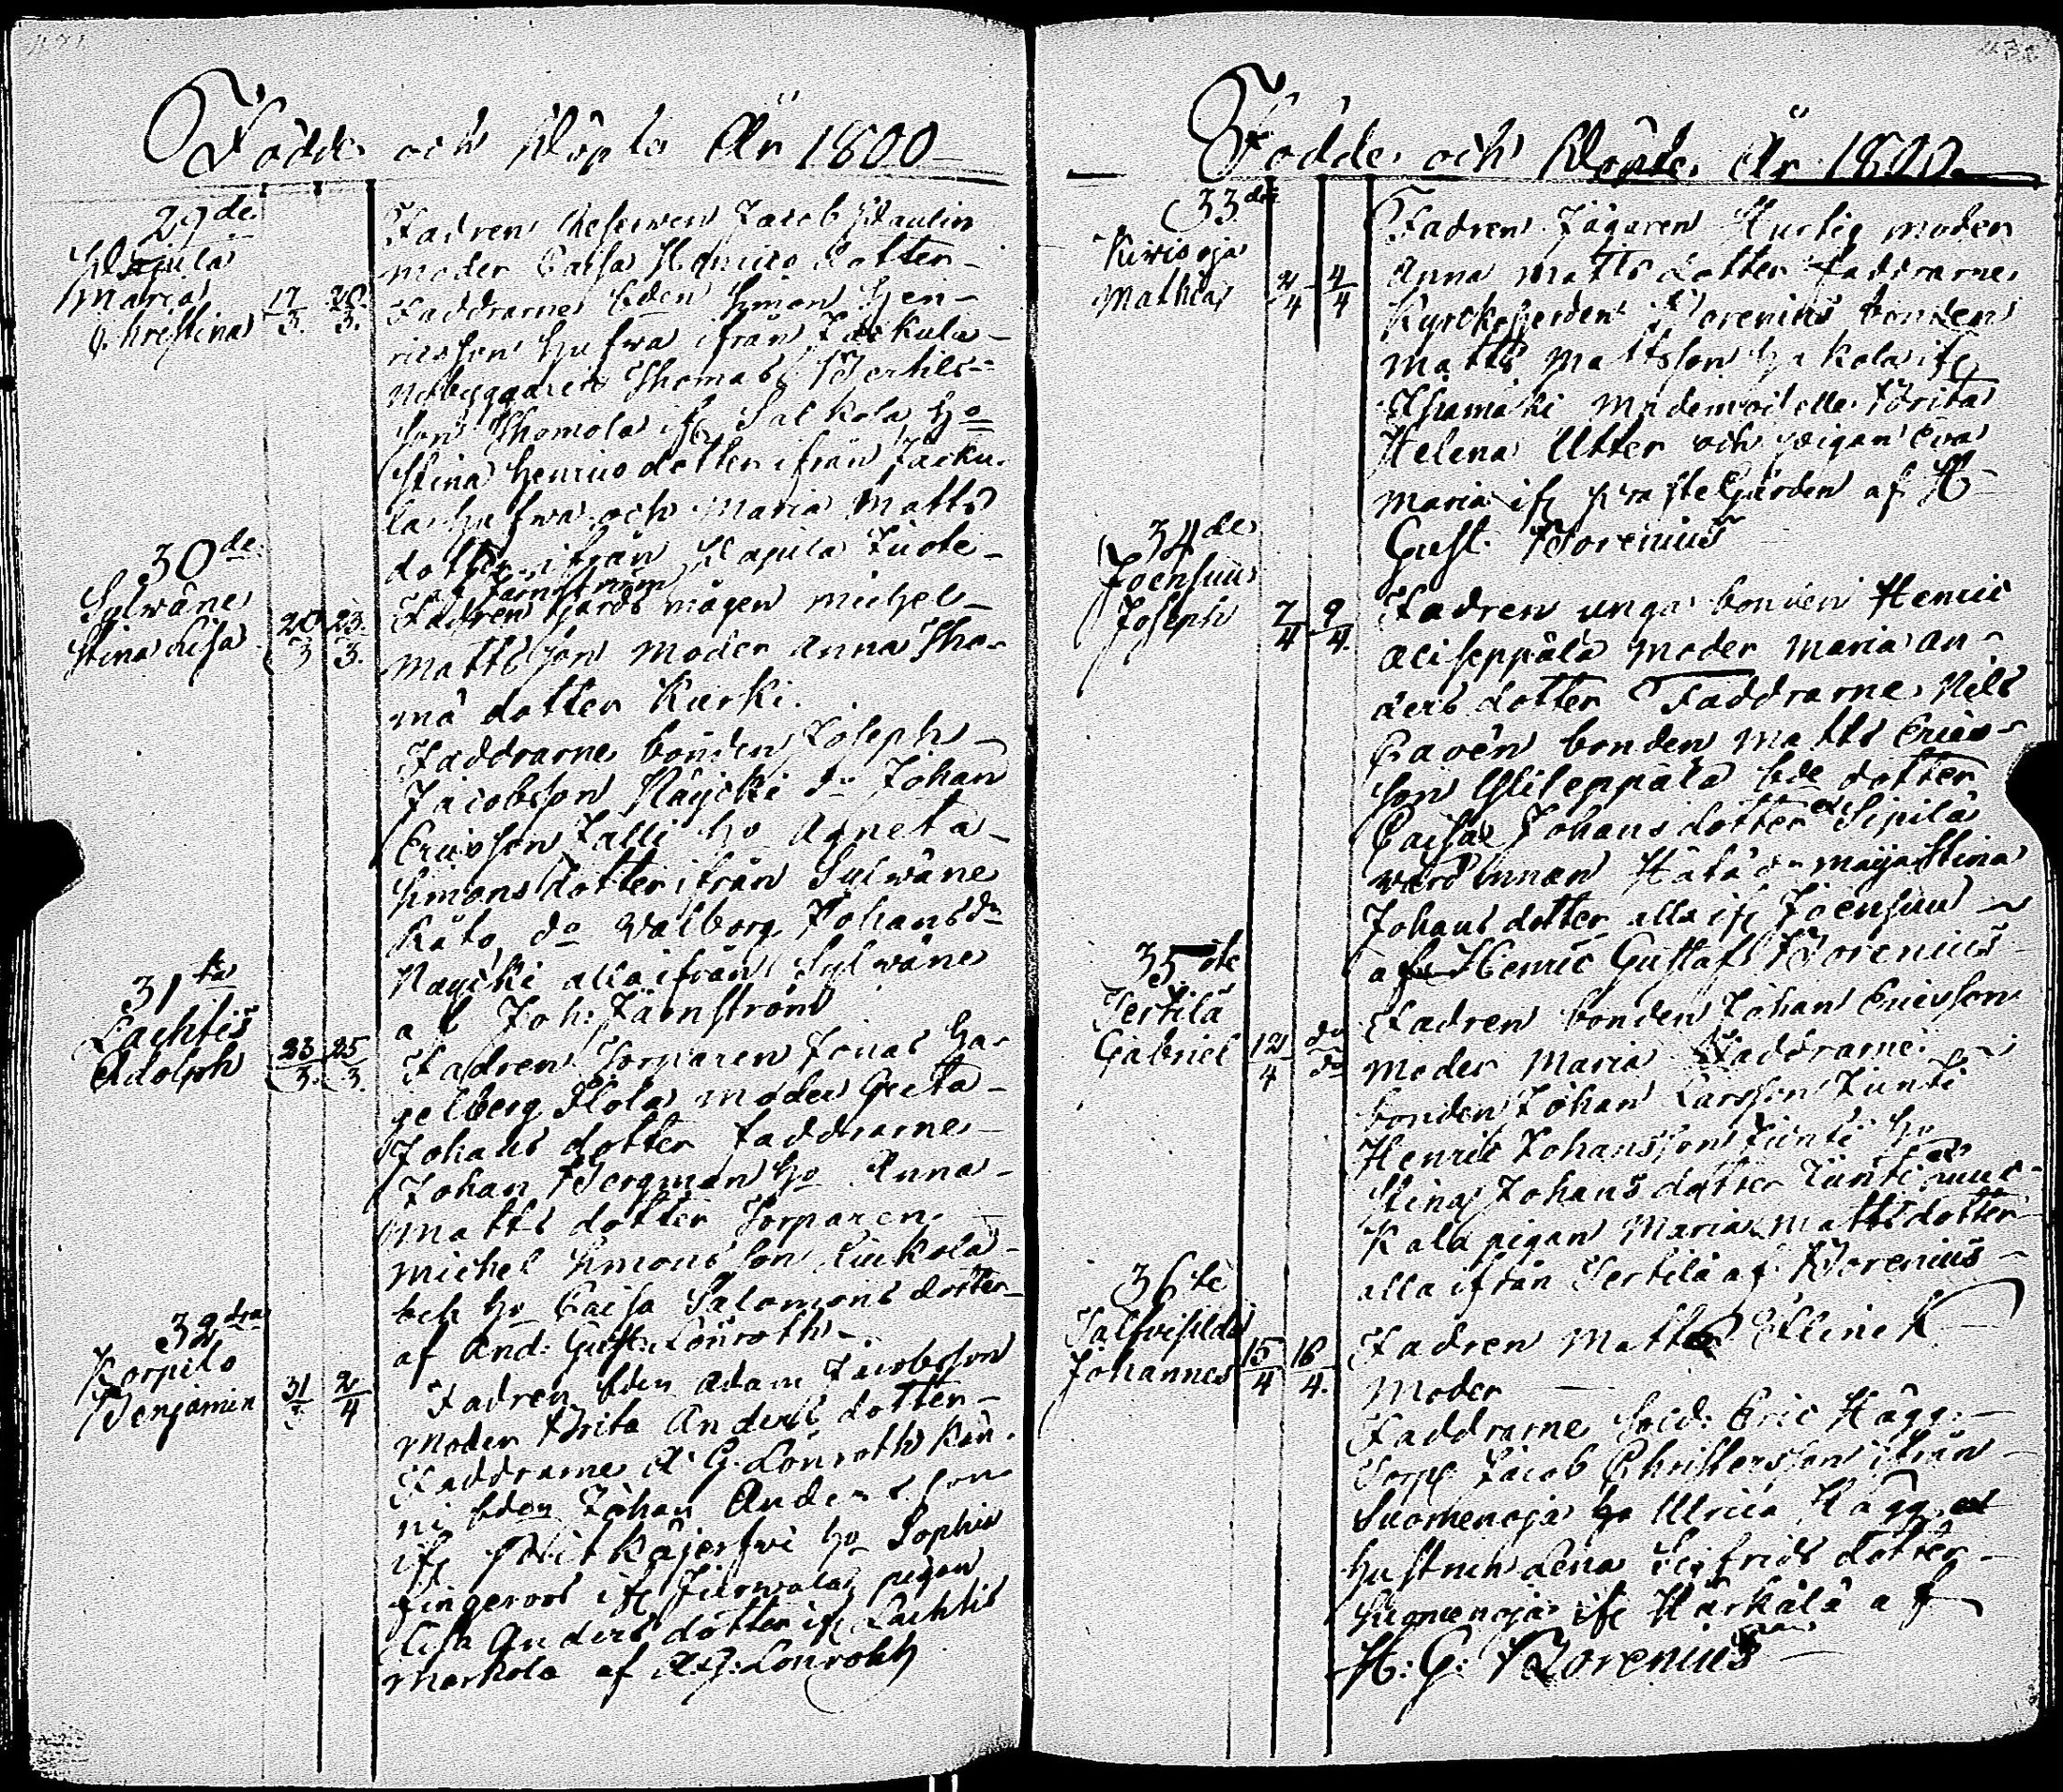 Födde och Döpte År 1800
29de
Maria
Christina
17/3 20/3
Fadren Reserven Jacob Paulin
moder Caisa Henrics dotter
Faddrarne bden Simon Hen-
ricsson Hufwa ifrån Jackula
Nybyggaren Thomas Bertils-
son Thomola ifr Salkola ho
Stina Henrics dotter ifrån Jacku-
la Hufwa och Maria Matts
dotter ifrån Papula
af Jarnström
30de
Sylwäne
Stina Lisa
20/3 23/3
Fadren mågen Michel
Mattsson moder Anna Tho-
mæ dotter Kurki.
Faddrarne bonden Joseph
Jacobsson Näycki do Johan
Ericsson Jalli ho Agneta
Simons dotter ifrån Sylwäne
Käto, do Walborg Johans dr
Näycki alla ifrån Sylwäne
af Joh: Järnström
31ta
Lachtis
Adolph
23/3 25/3
Fadren Torparen Jonas Ha-
gelberg moder Greta
Johans dotter Faddrarne
Johan Bergman ho Anna
Matts dotter Torparen
Michel Simons son Liukola
och ho Caisa Salomons dotter
af And: Gust: Lönroth
32dra
Korpilo
Benjamin
31/3 2/4
Fadren bden Adam Jacobsson
Moder Brita Anders dotter
Faddrarne A: G. Lönroth
bden Johan Andersson
ifr Pitkäjerfwi ho Sophia
Fingeroos ifr pigan
Lisa Anders dotter ifr Lachtis
Markola af A: G: Lönroth
Födde och Döpte År 1800
33dje
Kiwisoja
Mathias
2/4 4/4
Fadren Jägaren Hurtig moder
Anna Matts dotter Faddrarne
Kyrckoherden Borenius bonden
Matts Mattsson ifr
Mademoiselle Brita
Helena Utter och pigan Eva
Maria ifr Prästegården af H
Gust. Borenius
34de
Joensuu
Joseph
7/4 9/4
Fadren unga bonden Henric
Aliseppälä moder Maria An-
ders dotter Faddrarne Nils
Cavén bonden Matts Erics-
son Yliseppälä bde dotter
Caisa Johans dotter Sipilä
wärdinnan Hätä do Maija Stina
Johans dotter alla ifr Joensuu
af Henric Gustaf Borenius
35te
Tertilä
Gabriel
12/4 do do
Fadren bonden Johan Ericsson
Moder Maria Faddrarne
bonden Johan Larsson Junti
Henric Johansson Junti ho
Stina Johans dotter Junti
pigan Maria Matts dotter
alla ifrån Tertilä af Borenius
36te
Johannes
15/4 16/4
Fadren Matts Ellinek
Moder
Faddrarne Sold: Eric Hägg
Torp Jacob Christersson ifrån
Suomenoja ho Ulrica Hägg
Hustrun Lena Sigfrids dotter
Suomenoja ifr Härkälä af
H: G: Borenius